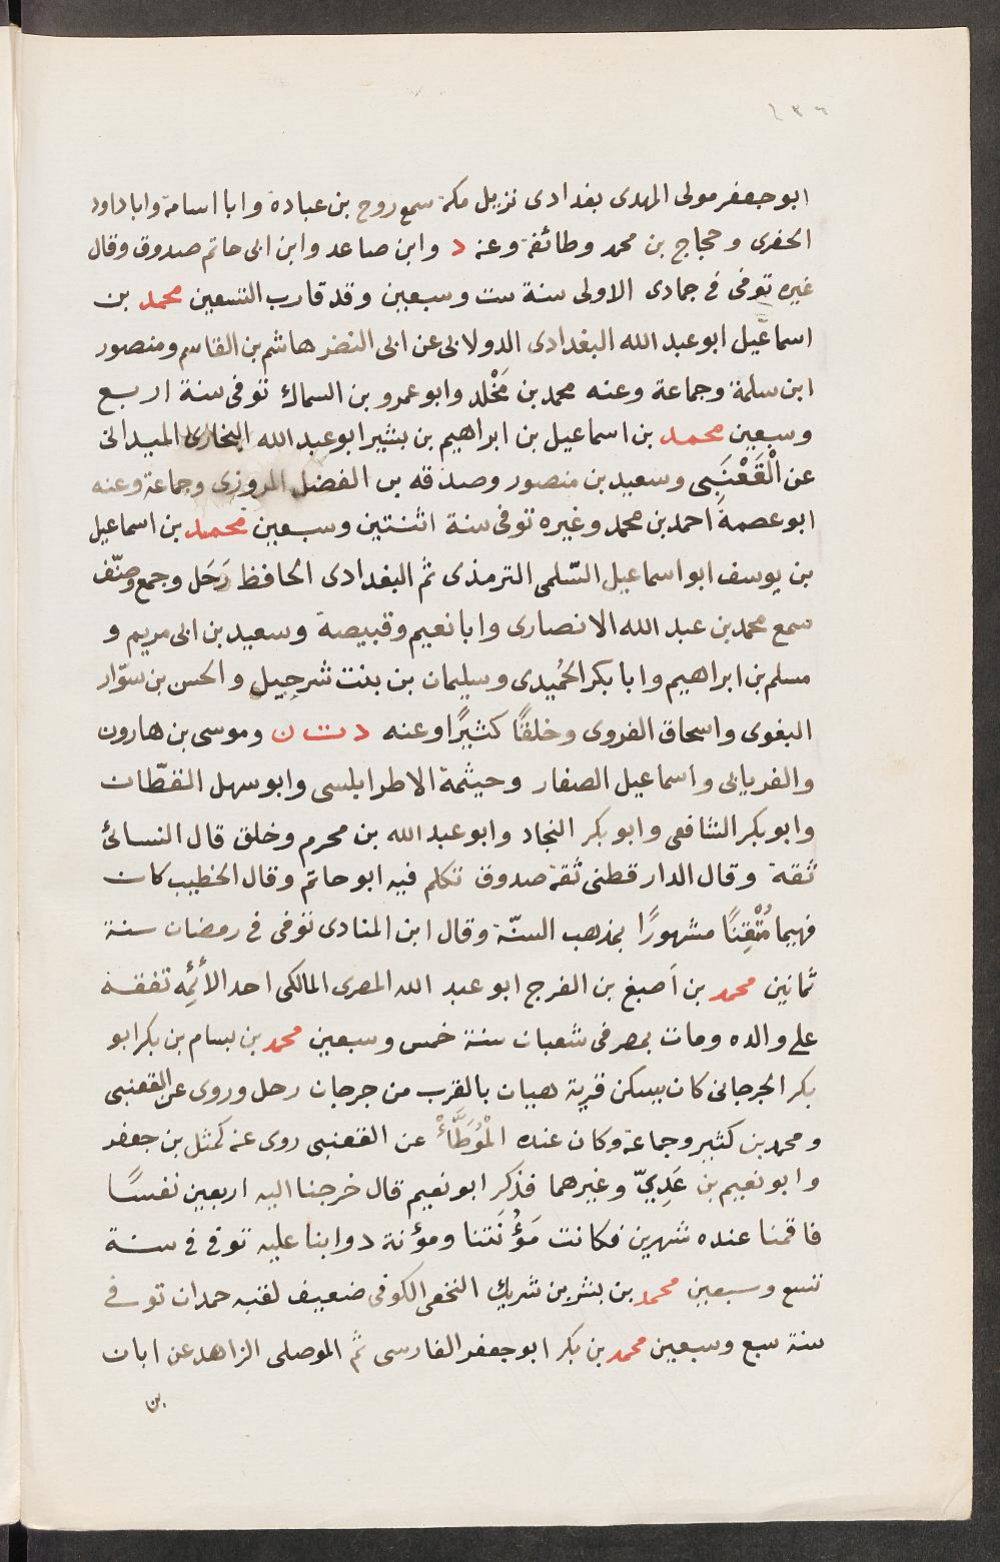 ٢٣٦
ابو جعفر مولى المهدى بغدادى نزيل مكة سمع روح بن عبادة وابا اسامة وابا داود
الحفرى وحجاج بن محمد وطائفة وعنه د وابن صاعد وابن ابى حاتم صدوق وقال
غيره توفى فى جمادى الاولى سنة ست وسبعين وقد قارب التسعين محمد بن
اسماعيل ابو عبد الله البغدادى الدولابى عن ابى النضر هاشم بن القاسم ومنصور
ابن سلمة وجماعة وعنه محمد بن مَخْلد وابو عمرو بن السماك توفى سنة اربع
وسبعين محمد بن اسماعيل بن ابراهيم بن بشير ابو عبد الله البخارى الميدانى
عن الْقَعْنَبِى وسعيد بن منصور وصدقه بن الفضل المروزى وجماعة وعنه
ابو عصمة احمد بن محمد وغيره توفى سنة اثنتين وسبعين محمد بن اسماعيل
بن يوسف ابو اسماعيل السّلمى الترمذى ثم البغدادى الحافظ رَحَل وجمع وصنّف
سمع محمد بن عبد الله الانصارى وابا نعيم وقبيصة وسعيد بن ابى مريم و
مسلم بن ابراهيم وابا بكر الحُميدى وسليمان بن بنت شرحبيل والحسن بن سوّار
البغوى واسحاق الفروى وخلقًا كثيرًا وعنه د ت ن وموسى بن هارون
والفريابى واسماعيل الصفار وحيثمة الاطرابلسى وابو سهل القطّان
وابو بكر الشافعى وابو بكر النجاد وابو عبد الله بن محرم وخلق قال النسائى
ثقة وقال الدارقطنى ثقة صدوق تكلم فيه ابو حاتم وقال الخطيب كان
فهيما مُتْقِنًا مشهورًا بمذهب السنّة وقال ابن المنادى توفى فى رمضان سنة
ثمانين محمد بن اَصبغ بن الفرج ابو عبد الله المصرى المالكى احد الأئِمّه تفقه
على والده ومات بمصر فى شعبان سنة خمس وسبعين محمد بن بسام بن بكر ابو
بكر الجرجانى كان يسكن قرية هيان بالقرب من جرجان رحل وروى عن القعنبى
ومحمد بن كثير وجماعة وكان عنده الْمُوَطَّاءْ عن القعنبى روى عنه كميل بن جعفر
وابو نعيم بن عَدِىّ وغيرهما فذكر ابو نعيم قال خرجنا اليه اربعين نفسًا
فاقمنا عنده شهرين فكانت مَؤُنَتنا ومؤنة دوابنا عليه توفى فى سنة
تسع وسبعين محمد بن بشر بن شريك النخعى الكوفى ضعيف لقبه حمدان توفى
سنة سبع وسبعين محمد بن بكر ابو جعفر الفارسى ثم الموصلى الزاهد عن ابان
بن